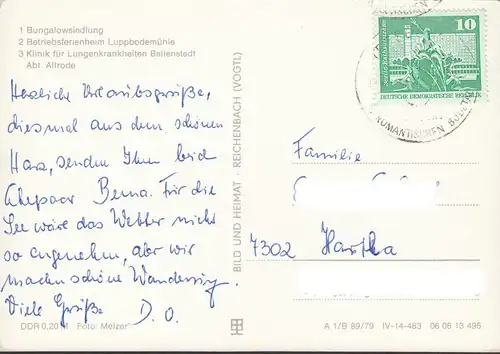 1 Bungalowsiedlung
2 Betriebsferienheim Luppbodemühle
3 Klinik für Lungenkrankheiten Ballenstedt
Abt Allrode
Herzliche Urlaubsgrüße,
diesmal aus dem schönen
Harz, senden Ihnen
Ehepaar Für die
See wäre das Wetter nicht
so angenehm, aber wir
machen schöne
Viele Grüße D. O.
DDR 0,20 M Foto: Melzer
BILD UND HEIMAT · REICHENBACH (VOGTL)
A 1/B 89/79 IV-14-483 06 06 13 495
10
DEUTSCHE DEMOKRATISCHE REPUBLIK
ROMANTISCHEN
Familie
7302 Hartha